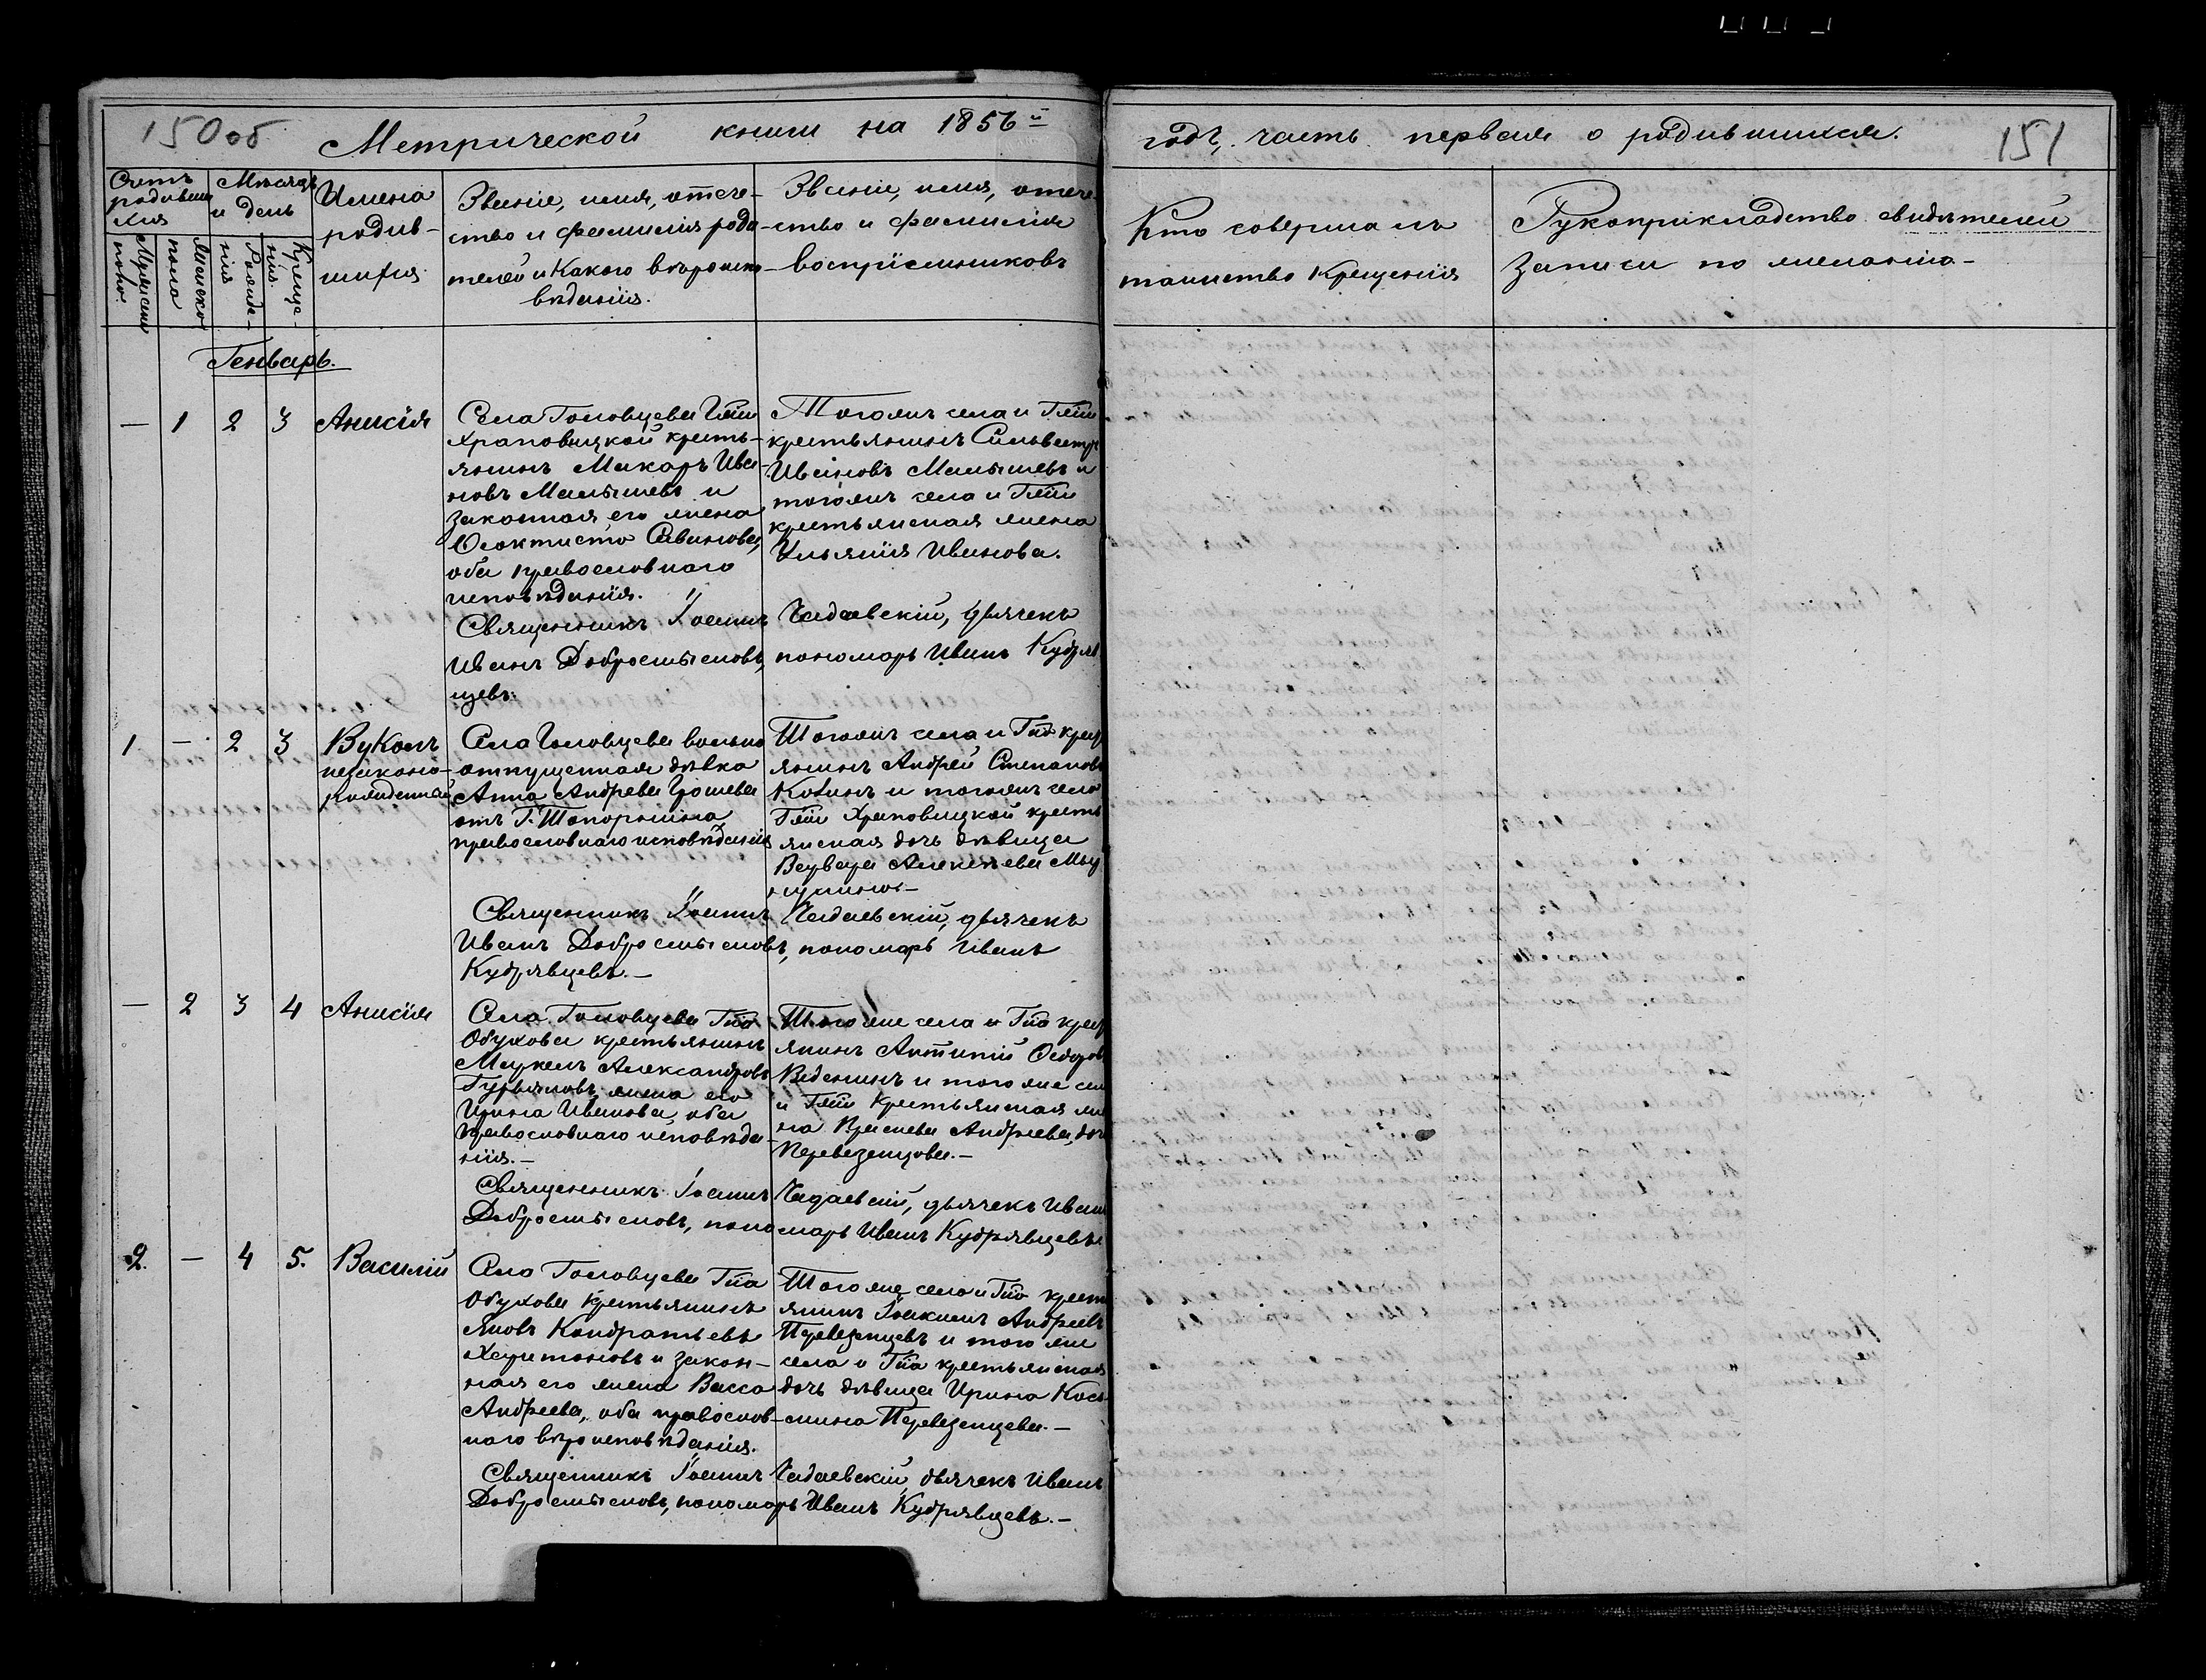 150об
Метрической книги на 1856й
годъ, часть первая о родившихся.
151
Счетъ родивших хся
Мѣсяцъ и день
Имена родив- шихся
Званіе, имя, отече- ство и фамилія роди- телей и какого вѣроиспо- вѣданія.
Званіе, имя, отече- ство и фамилія воспріемниковъ
Кто совершалъ таинство крещенія
Рукоприкладство свидѣтелей записи по желанію
Мужеска пола
Женска пола
Рожде- нія
Креще- нія.
Генварь.
— 1 2 3 Анисія
Села Головцева Гжи
Храповицкой кресть-
янинъ Макаръ Ива-
новъ Малышевъ и
законная его жена
Ѳеоктиста Савинова,
оба православнаго
исповѣданія.
Тогожъ села и Гжи
крестьянинъ Сильвестръ
Ивановъ Малышевъ и
тогожъ села и Гжи
крестьянская жена
Ульянія Иванова.
Священникъ Іоаннъ Чадаевскій, дьячекъ
Иванъ Добросмысловъ, пономарь Иванъ Кудряв
цевъ.
1 — 2 3 Вуколъ
незаконо-
рожденный
Села Головцева вольно
отпущенная дѣвка
Анна Андреева Грошева
отъ Г. Топорнина
православнаго исповѣданія
Тогожъ села и Гна крест
янинъ Андрей Степановъ
и тогожъ села
Гжи Храповицкой кресть
янская дочь дѣвица
Варвара Алексѣева
Священникъ Іоаннъ Чадаевскій, дьячекъ
Иванъ Добросмысловъ, пономарь Иванъ
Кудрявцевъ.—
— 2 3 4 Анисія
Села Головцева Гна
Обухова крестьянинъ
Маркелъ Александровъ
Гурьяновъ, жена его
Ирина Иванова, оба
православнаго исповѣда-
нія.—
Того же села и Гна крест
янинъ Антипій Ѳедоровъ
Веденинъ и того же се
и Гжи крестьянская же
на Андреева, доч
Перевезенцова.—
Священникъ Іоаннъ Чадаевскій, дьячекъ Иван
Добросмысловъ, пономарь Иванъ Кудрявцевъ
2. — 4 5. Василій
Села Головцева Гна
Обухова крестьянинъ
Яковъ Кондратьевъ
Харитоновъ и закон-
ная его жена Васса
Андреева, оба православ-
наго вѣроисповѣданія.
Того же села и Гна крест
янинъ Іоакимъ Андреевъ
Перевезенцевъ и того же
села и Гна крестьянская
дочь дѣвица Ирина Кось-
мина Перевезенцева.—
Священникъ Іоаннъ Чадаевскій, дьячекъ Иванъ
Добросмысловъ, пономарь Иванъ Кудрявцевъ.—